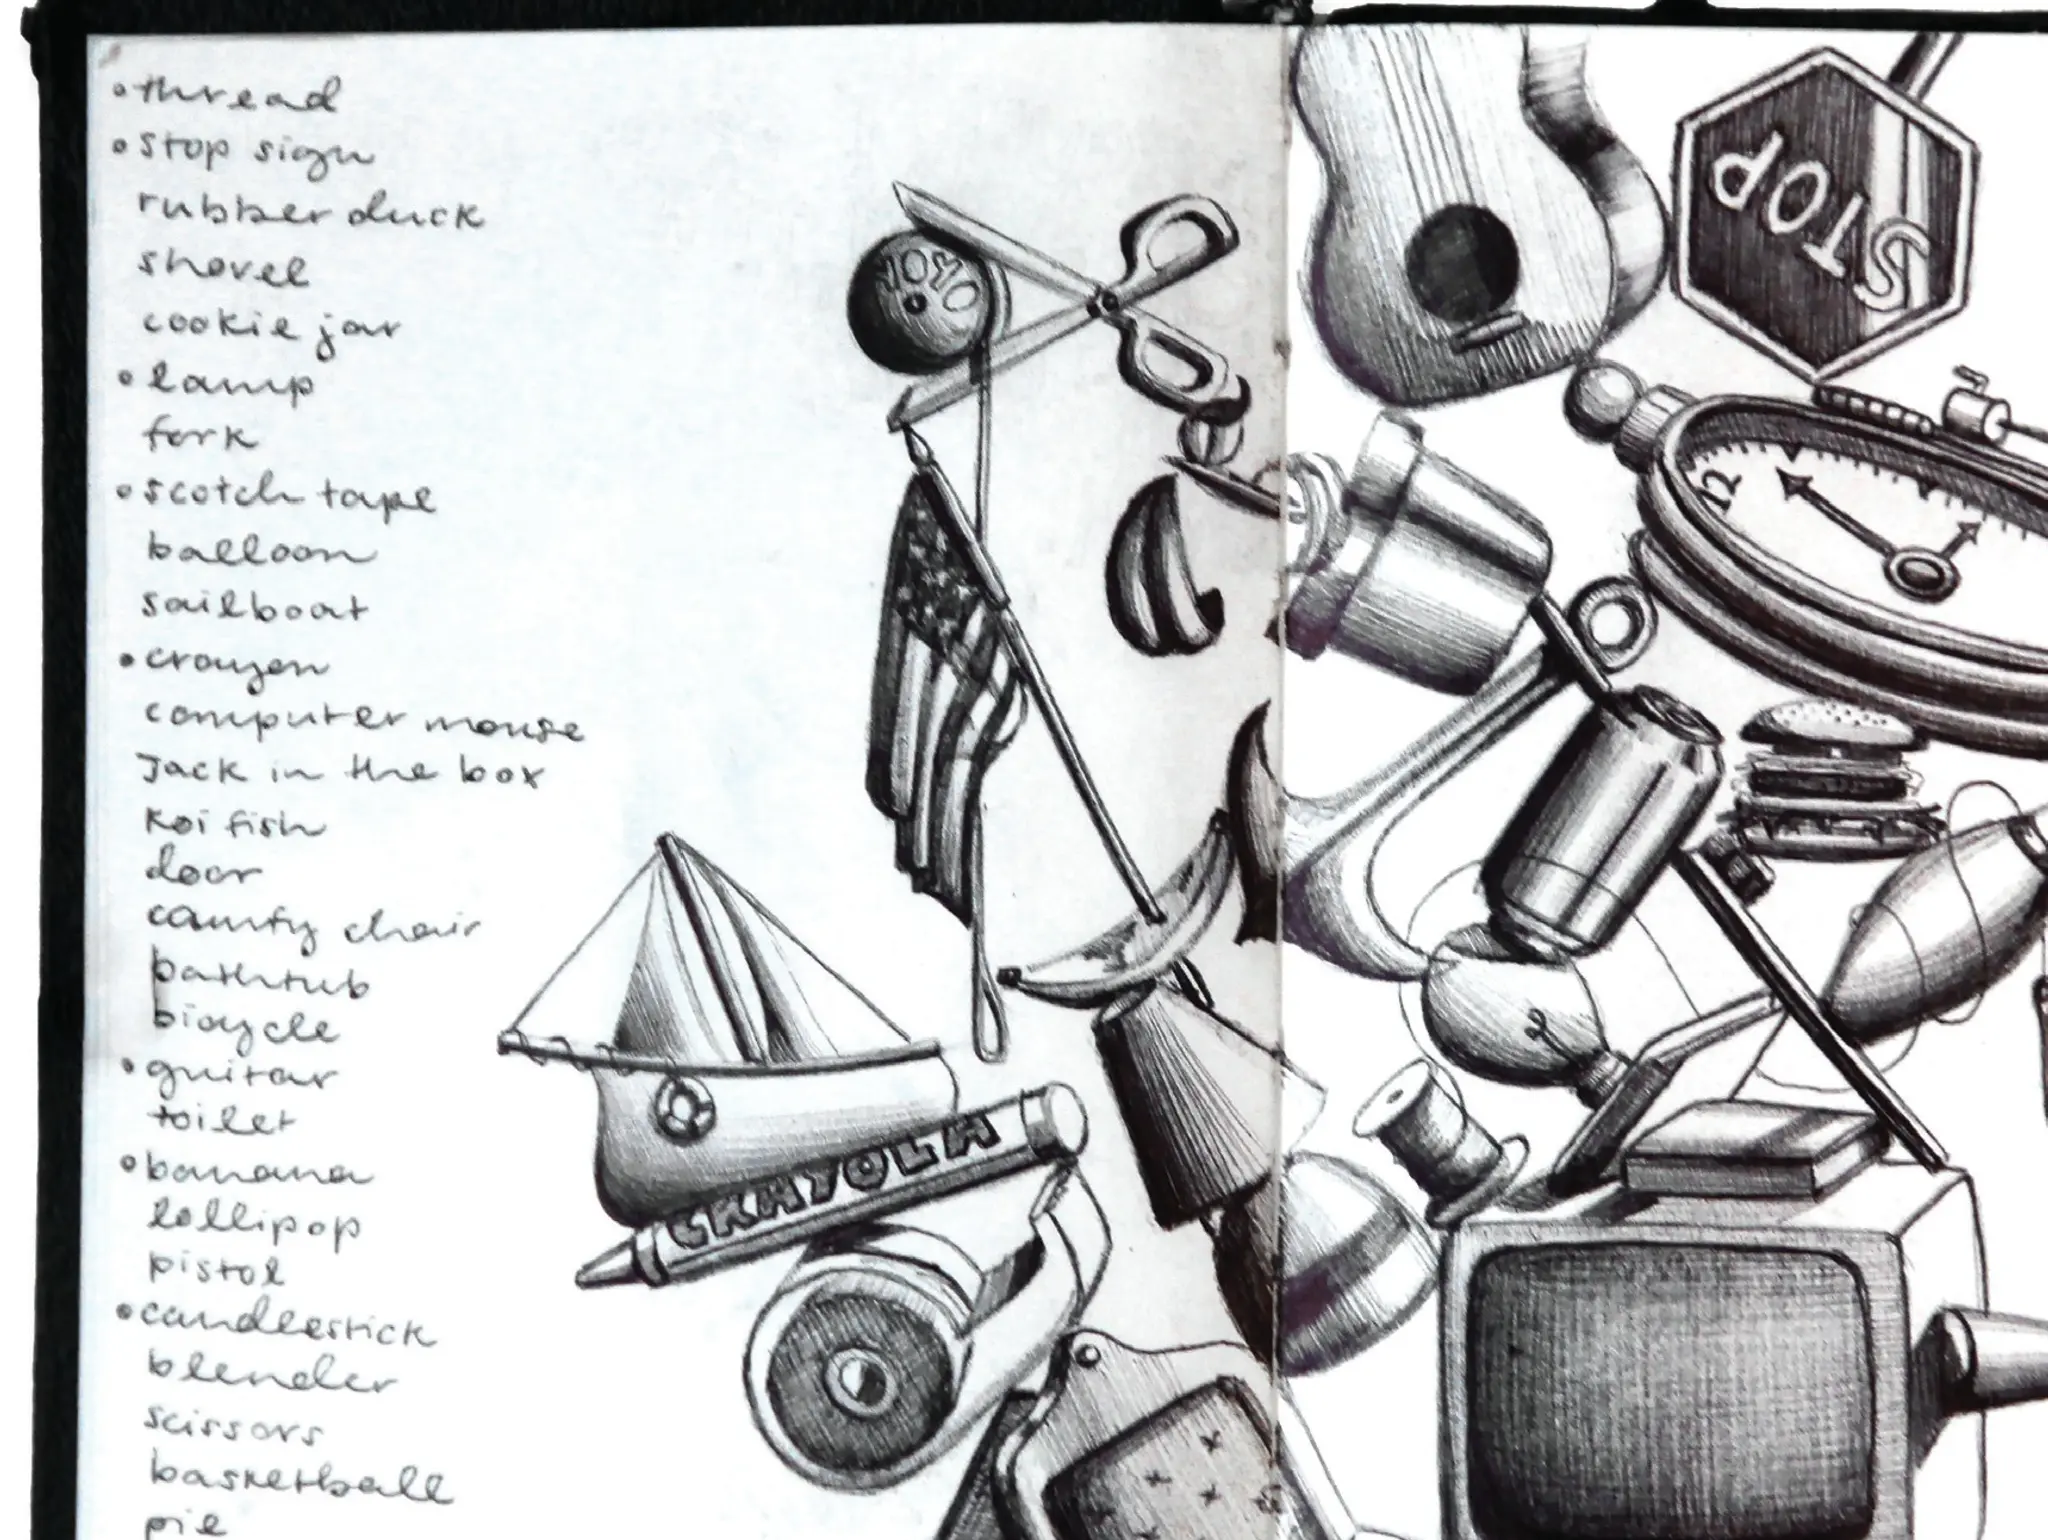 • thread
• stop sign
rubber duck
shovel
cookie jar
• lamp
fork
• scotch tape
balloon
sailboat
• crayon
computer mouse
Jack in the box
koi fish
door
comfy chair
bathtub
bicycle
• guitar
toilet
• banana
lollipop
pistol
• candlestick
blender
scissors
basketball
pie
YOYO
STOP
12
CRAYOLA